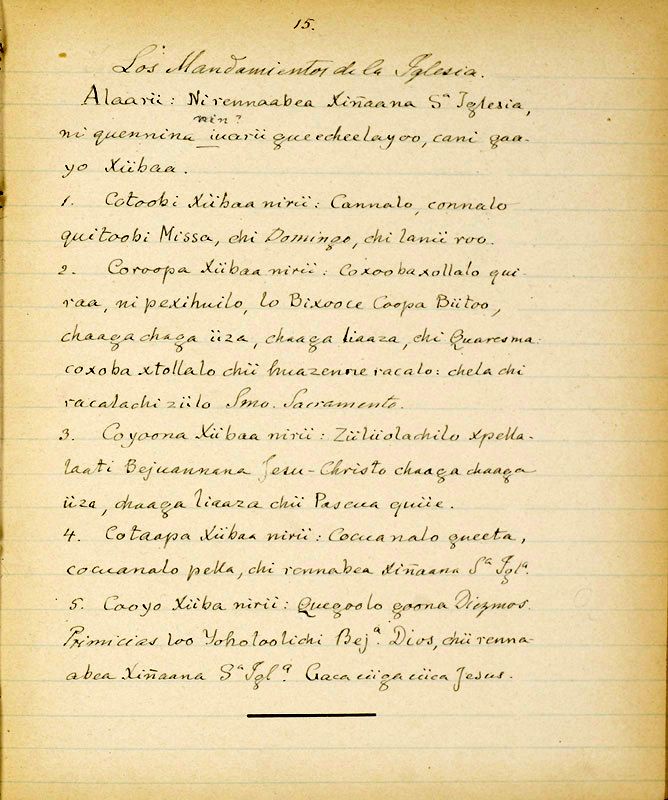 15.
Los Mandamientos de la Iglesia.
Alaarii: Ni rennaabea Xiñaana Sª Iglesia,
nin?
ni quennina iuarii queecheelayoo, cani gaa-
yo Xiibaa.
1. Cotoobi Xiibaa nirii: Cannalo, connalo
quitoobi Missa, chi Domingo, chi lanii roo.
2. Coroopa Xiibaa nirii: Coxoobaxollalo qui-
raa, ni pexihuilo, lo Bixooce Coopa Biitoo,
chaaga chaga iiza, chaaga liaaza, chi Quaresma:
coxoba xtollalo chii huazenne racalo: chela chi
racalachi ziilo Smo. Sacramento.
3. Coyoona Xiibaa nirii: Ziiliiolachilo xpella-
laati Bejuannana Jesu-Christo chaaga chaaga
iiza, chaaga liaaza chii Pascua quiie.
4. Cotaapa Xiibaa nirii: Cocuanalo queeta,
cocuanalo pella, chi rennabea Xiñaana Sª Iglª.
5. Caayo Xiiba nirii: Quegoolo goona Diezmos
Primicias loo Yoholoolichi Bejª. Dios, chii renna-
abea Xiñaana Sª Iglª. Gaca ciiga ciica Jesus.